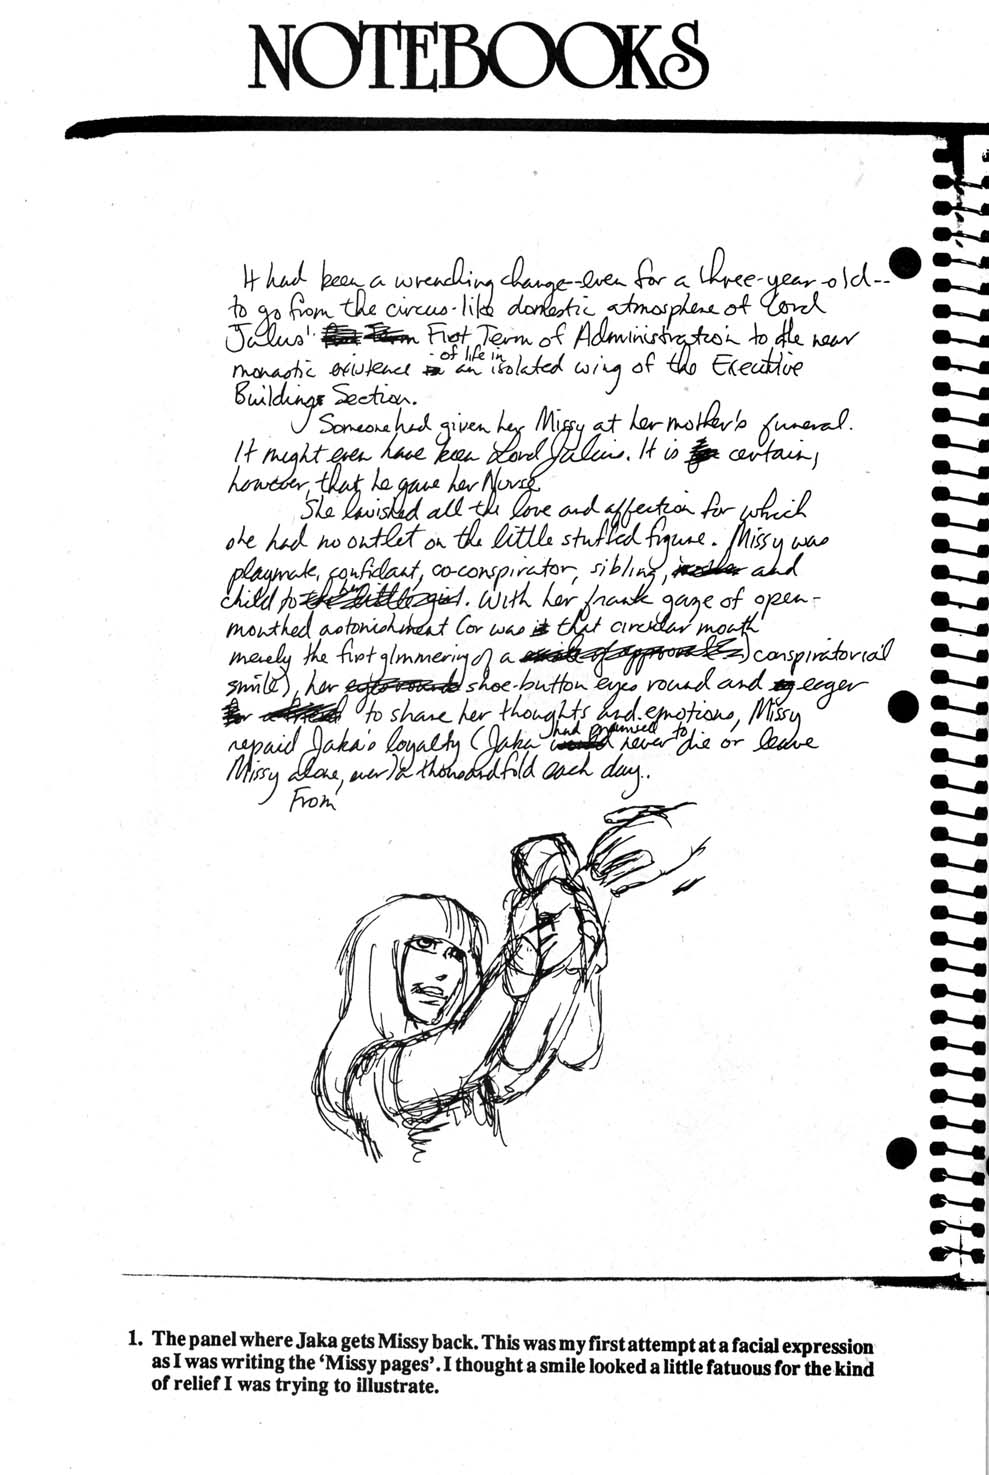 NOTEBOOKS
It had been a wrenching change--even for a three-year-old--
to go from the circus-like domestic atmosphere of Lord
Julius' First Term of Administration to the near
monastic existence of life in an isolated wing of the Executive
Buildings Section.
Someone had given her Missy at her mother's funeral.
It might even have been Lord Julius. It is certain,
however, that he gave her Nurse
She lavished all the love and affection for which
she had no outlet on the little stuffed figure. Missy was
playmate, confidant, co-conspirator, sibling, and
child to her. With her frank gaze of open-
mouthed astonishment (or was that circular mouth
merely the first glimmering of a conspiratorial
smile), her shoe-button eyes round and eager
to share her thoughts and emotions, Missy
repaid Jaka's loyalty (Jaka had promised to never die or leave
Missy alone, ever) a thousandfold each day..
From
1. The panel where Jaka gets Missy back. This was my first attempt at a facial expression
as I was writing the ‘Missy pages’. I thought a smile looked a little fatuous for the kind
of relief I was trying to illustrate.